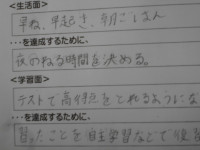 <生活面>
早ね、早起き、朝ごはん
...を達成するために、
夜のねる時間を決める。
<学習面>
テストで高得点をとれるようにな
...を達成するために、
習ったことを自主学習などで復習